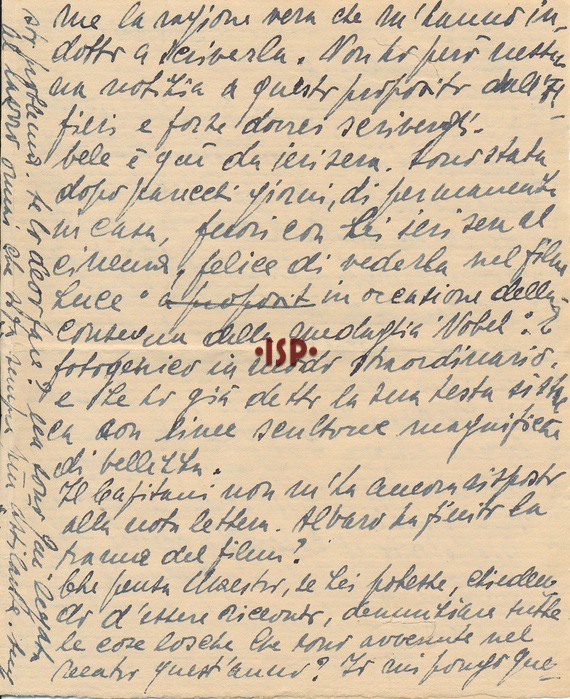 me la ragione vera che m'hanno in-
dotto a scriverla. Non ho però nessu-
na notizia a questo proposito dall'
fieri e forse dovrei scrivergli.
bele è qui da ieri sera. Sono stata
dopo parecchi giorni, di permanenza
in casa, fuori con Lei ieri sera al
cinema, felice di vederla nel film
Luce "a proposit in occasione della
consegna della medaglia Nobel". È
fotogenico in modo straordinario.
e Le ho già detto la sua testa si stac
ca con linee scultoree magnifiche
di bellezza.
Il Capitani non m'ha ancora risposto
alla nota lettera. Alvaro ha finito la
trama del film?
Che pensa Maestro, se Lei potesse, chieden
do d'essere ricevuto, denunziare tutte
le cose losche che sono avvenute nel
teatro quest'anno? Io mi pongo que-
·ISP·